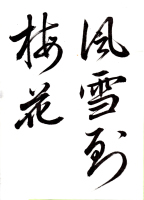 風雪到
梅花